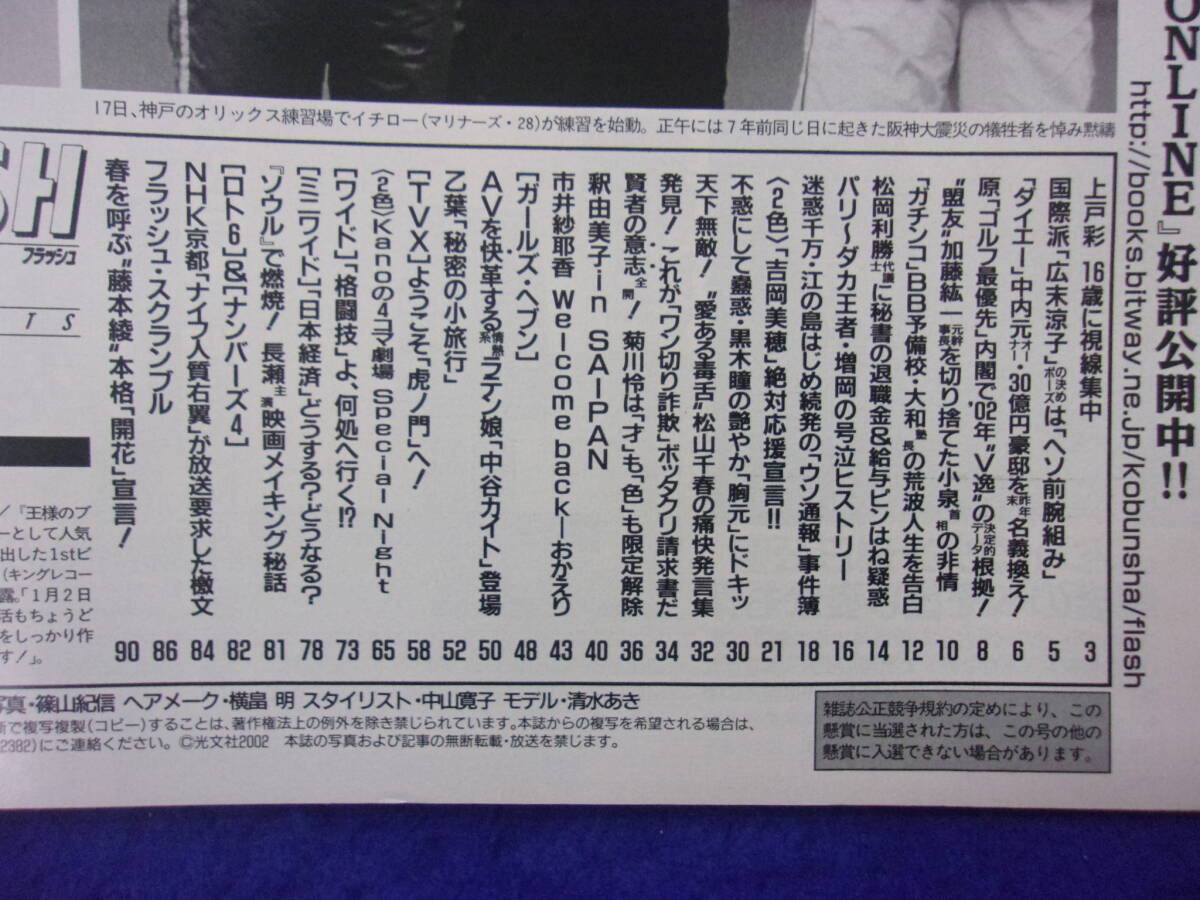 ONLINE』好評公開中!!
http://books.bitway.ne.jp/kobunsha/flash
17日、神戸のオリックス練習場でイチロー(マリナーズ・28)が練習を始動。正午には7年前同じ日に起きた阪神大震災の犠牲者を悼み黙禱
SH
フラッシュ
TS
上戸彩 16歳に視線集中 3
国際派「広末涼子」の決めポーズは「ヘソ前腕組み」 5
「ダイエー」中内元オーナー・30億円豪邸を昨年末名義換え! 6
原「ゴルフ最優先」内閣で'02年“V逸”の決定的データ根拠! 8
“盟友”加藤紘一元幹事長を切り捨てた小泉首相の非情 10
「ガチンコ」BB予備校・大和塾長の荒波人生を告白 12
松岡利勝代議士に秘書の退職金&給与ピンはね疑惑 14
パリ〜ダカ王者・増岡の号泣ヒストリー 16
迷惑千万・江の島はじめ続発の「ウソ通報」事件簿 18
〈2色〉「吉岡美穂」絶対応援宣言!! 21
不惑にして蠱惑・黒木瞳の艶やか「胸元」にドキッ 30
天下無敵!“愛ある毒舌”松山千春の痛快発言集 32
発見!これが「ワン切り詐欺」ボッタクリ請求書だ 34
賢者の意志全開!菊川怜は「才」も「色」も限定解除 36
釈由美子in SAIPAN 40
市井紗耶香 Welcome back—おかえり 43
[ガールズ・ヘブン] 48
AVを快革する情熱系フテン娘「中谷カイト」登場 50
乙葉「秘密の小旅行」 52
[TVX]ようこそ「虎ノ門」へ! 58
〈2色〉Kanoの4コマ劇場 Special Night 65
[ワイド]「格闘技」よ、何処へ行く!? 73
[ミニワイド]「日本経済」どうする?どうなる? 78
『ソウル』で燃焼!長瀬主演映画メイキング秘話 81
[ロト6]&[ナンバーズ4] 82
NHK京都「ナイフ人質右翼」が放送要求した檄文 84
フラッシュ・スクランブル 86
春を呼ぶ“藤本綾”本格「開花」宣言! 90
/『王様のブ
ーとして人気
出した1stビ
(キングレコー
露。「1月2日
活もちょうど
をしっかり作
す!」。
写真・篠山紀信 ヘアメーク・横畠 明 スタイリスト・中山寛子 モデル・清水あき
断で複写複製(コピー)することは、著作権法上の例外を除き禁じられています。本誌からの複写を希望される場合は、
2382)にご連絡ください。©光文社2002 本誌の写真および記事の無断転載・放送を禁じます。
雑誌公正競争規約の定めにより、この
懸賞に当選された方は、この号の他の
懸賞に入選できない場合があります。